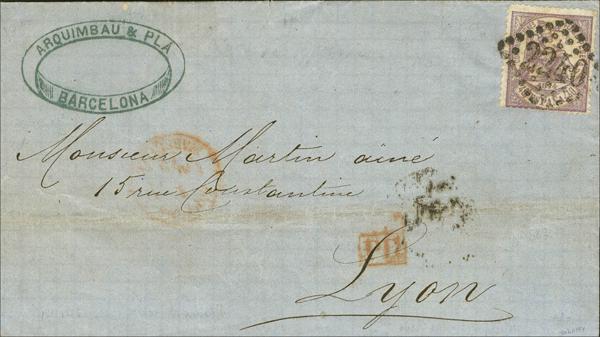 ARQUIMBAU & PLÁ
BARCELONA
2240
Monsieur Martin ainé
15 rue Constantine
PD
Lyon